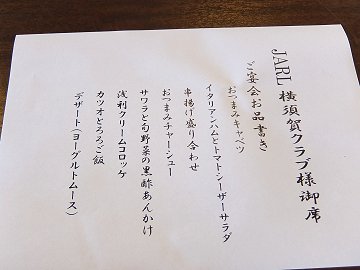 JARL 横須賀クラブ様御席
ご宴会お品書き
おつまみキャベツ
イタリアンハムとトマトシーザーサラダ
串揚げ盛り合わせ
おつまみチャーシュー
サワラと旬野菜の黒酢あんかけ
浅利クリームコロッケ
カツオとろろご飯
デザート(ヨーグルトムース)